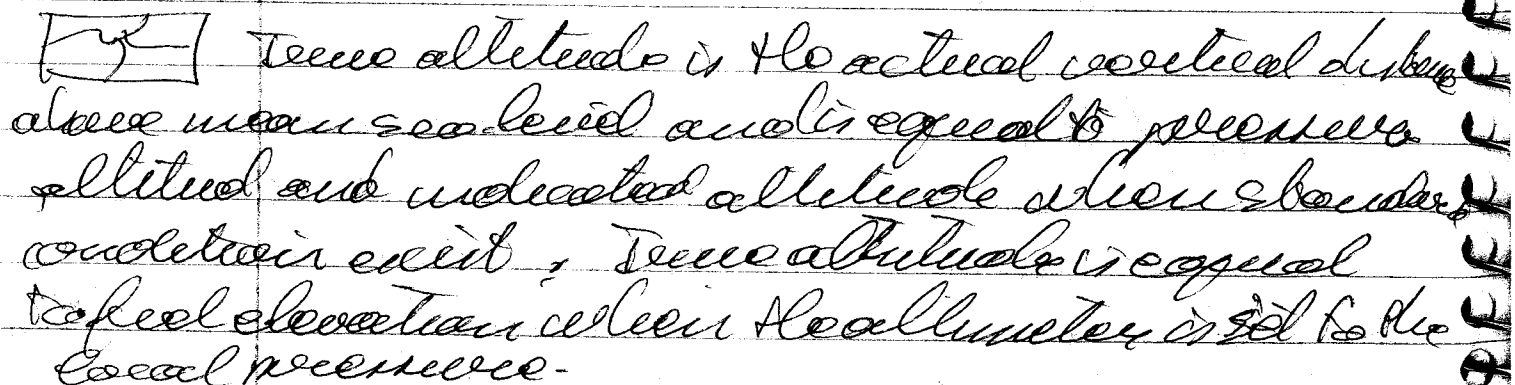 True altitude is the actual vertical distance
above mean sea level and is equal to pressure
altitud and indicated altitude when standard
condition exist, True altitude is equal
to field elevation when the altimeter is set to the
local pressure.